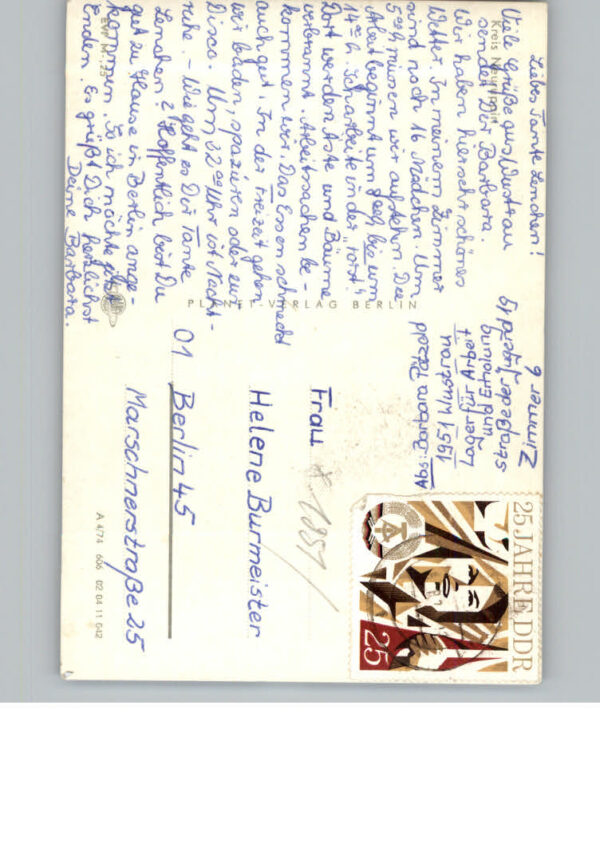 Liebe Tante Lenchen!
Viele Grüße aus Wustrau
sendet Dir Barbara.
Wir haben hier sehr schönes
Wetter. In meinem Zimmer
sind noch 16 Mädchen. Um
5⁰⁰h müssen wir aufstehn. Die
Arbeit beginnt um 7⁰⁰h bis um
14⁰⁰h. Ich arbeite in der "Forst".
Dort werden Äste und Bäume
verbrannt. Arbeitssachen be-
kommen wir. Das Essen schmeckt
auch gut. In der Freizeit gehen
wir baden, spazieren oder zur
Disco. Um 22⁰⁰ Uhr ist Nacht-
ruhe. – Wie geht es Dir Tante
Lenchen? Hoffentlich bist Du
gut zu Hause in Berlin ange-
kommen. So ich möchte jetzt
enden. Es grüßt Dich herzlichst
Deine Barbara.
Kreis Neuruppin
EVP M -,25
PLANET-VERLAG BERLIN
Abs: Barbara
1951 Wustrau
Lager für Arbeit
und Erholung
Zimmer 6
25 JAHRE DDR
25
* 1851
Frau
Helene Burmeister
01 Berlin 45
Marschnerstraße 25
A 4/74 606 02 04 11 042